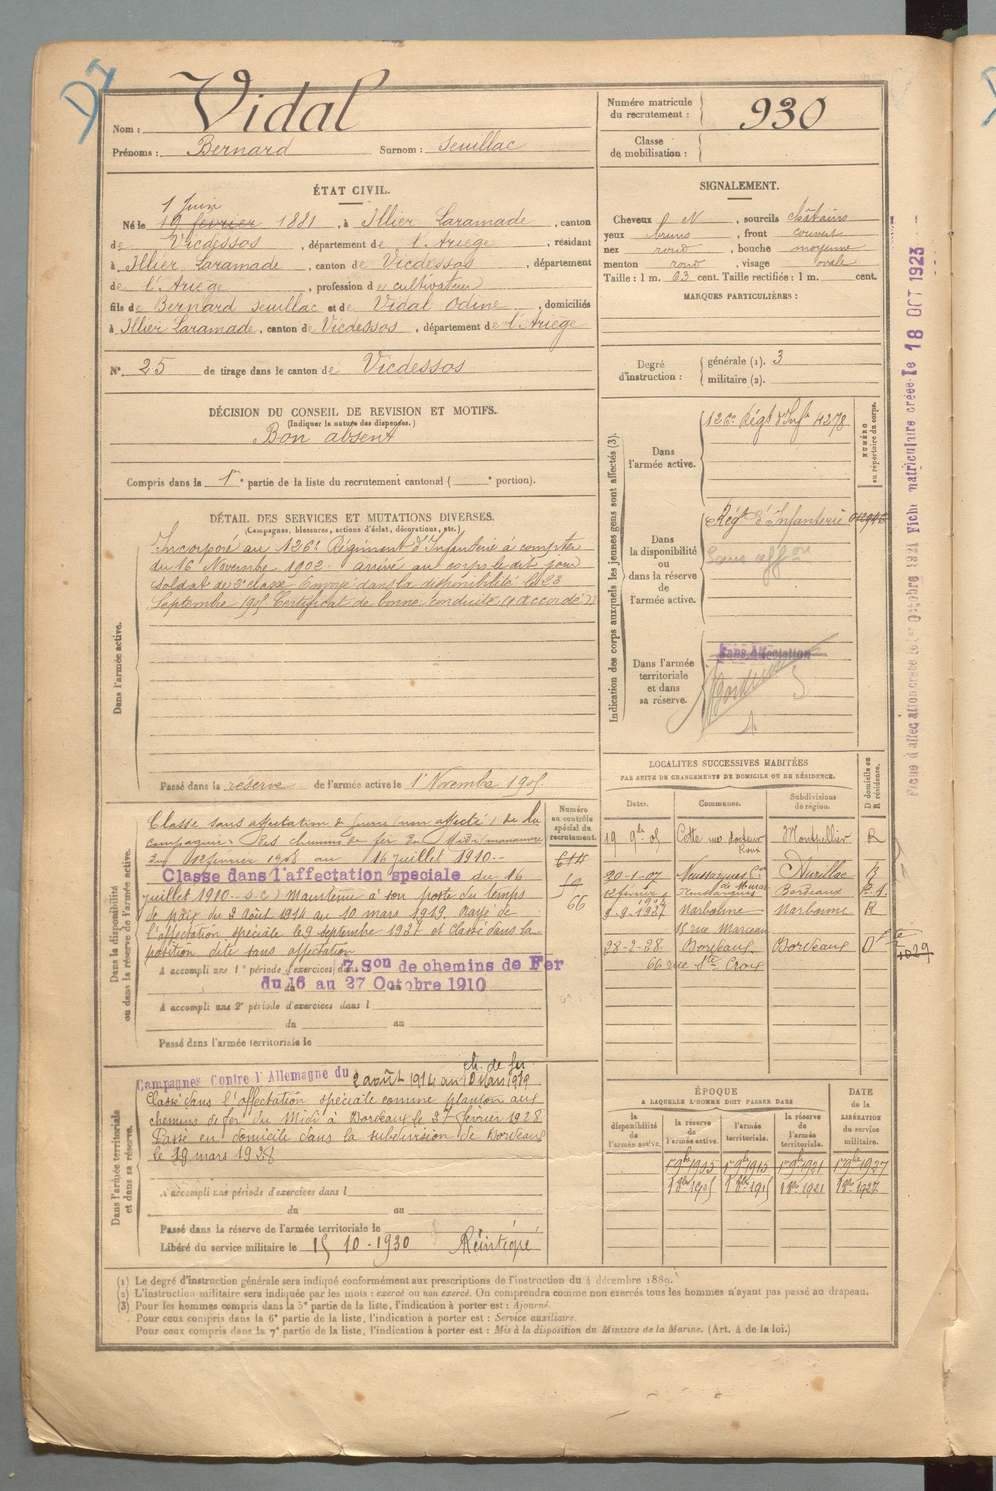 Vidal
Nom :
Prénoms : Bernard Surnom : Seuillac
Numéro matricule
du recrutement : 930
Classe
de mobilisation :
ÉTAT CIVIL.
1 Juin
Né le 19 février 1881, à Illier Laramade, canton
de Vicdessos, département de l'Ariège, résidant
à Illier Laramade, canton de Vicdessos, département
de l'Ariège, profession de cultivateur
fils de Bernard Seuillac et de Vidal Odine, domiciliés
à Illier Laramade, canton de Vicdessos, département de l'Ariège
N° 25 de tirage dans le canton de Vicdessos
SIGNALEMENT.
Cheveux N, sourcils châtains
yeux bruns, front couvert
nez rond, bouche moyenne
menton rond, visage ovale
Taille : 1 m. 63 cent. Taille rectifiée : 1 m. cent.
MARQUES PARTICULIÈRES :
Degré
d'instruction :
générale (1). 3
militaire (2).
DÉCISION DU CONSEIL DE REVISION ET MOTIFS.
(Indiquer la nature des dispenses.)
Bon absent
Compris dans la 1re partie de la liste du recrutement cantonal ( e portion).
DÉTAIL DES SERVICES ET MUTATIONS DIVERSES.
(Campagnes, blessures, actions d'éclat, décorations, etc.)
Dans l'armée active.
Incorporé au 126e Régiment d'Infanterie à compter
du 16 Novembre 1902. arrivé au corps le dit jour
soldat de 2e classe. Envoyé dans la disponibilité le 23
Septembre 1905 Certificat de bonne conduite accordé
Passé dans la réserve de l'armée active le 1 Novembre 1905.
Indication des corps auxquels les jeunes gens sont affectés (3).
NUMÉRO
au répertoire du corps.
Dans
l'armée active.
126e Régt d'Infie 4278
Dans
la disponibilité
ou
dans la réserve
de
l'armée active.
Régt d'Infanterie
Sans affon
Dans l'armée
territoriale
et dans
sa réserve.
Sans Affectation
Bordeaux
Dans la disponibilité
ou dans la réserve de l'armée active.
Numéro
au contrôle
spécial du
recrutement.
66
Classé sans affectation (non affecté) de la
compagnie des chemins de fer du Midi manœuvre
du 12 février 1908 au 16 juillet 1910--
Classe dans l'affectation spéciale du 16
juillet 1910-- (s.c.) Maintenu à son poste du temps
de paix du 2 août 1914 au 10 mars 1919. Rayé de
l'affectation spéciale le 9 septembre 1927 et Classé dans la
position dite sans affectation
A accompli une 1e période d'exercices dans
7 Son de chemins de Fer
du 16 au 27 Octobre 1910
A accompli une 2e période d'exercices dans l
du au
Passé dans l'armée territoriale le
LOCALITES SUCCESSIVES HABITÉES
PAR SUITE DE CHANGEMENTS DE DOMICILE OU DE RÉSIDENCE.
Dates. Communes. Subdivisions
de région. D domicile ou
R résidence.
19 9bre 05 Cette Montpellier R
20-1-07 Neussargues Aurillac R
12 février Neussargues Bordeaux R.A.
9-9-1927 Narbonne Narbonne R
15 rue Marceau
28-2-28 Bordeaux Bordeaux D
66 rue Ste Croix
Dans l'armée territoriale
et dans sa réserve.
Campagnes Contre l'Allemagne du 2 août 1914 au 10 Mars 1919
ch. de fer
Classé dans l'affectation spéciale comme planton aux
chemins de fer du Midi à Bordeaux le 27 février 1928
Passé en domicile dans la subdivision de Bordeaux
le 19 mars 1928
A accompli une période d'exercices dans l
du au
Passé dans la réserve de l'armée territoriale le
Libéré du service militaire le 15-10-1930 Réintégré
ÉPOQUE
A LAQUELLE L'HOMME DOIT PASSER DANS
DATE
de la
LIBÉRATION
du service
militaire.
la
disponibilité
de
l'armée active.
la réserve
de
l'armée active.
l'armée
territoriale.
la réserve
de
l'armée
territoriale.
(1) Le degré d'instruction générale sera indiqué conformément aux prescriptions de l'instruction du 4 décembre 1889.
(2) L'instruction militaire sera indiquée par les mots : exercé ou non exercé. On comprendra comme non exercés tous les hommes n'ayant pas passé au drapeau.
(3) Pour les hommes compris dans la 5e partie de la liste, l'indication à porter est : Ajourné.
Pour ceux compris dans la 6e partie de la liste, l'indication à porter est : Service auxiliaire.
Pour ceux compris dans la 7e partie de la liste, l'indication à porter est : Mis à la disposition du Ministre de la Marine. (Art. 4 de la loi.)
Fiche d'affectation créée le 1er Octobre 1921 Fiche matriculaire créée le 18 OCT 1923